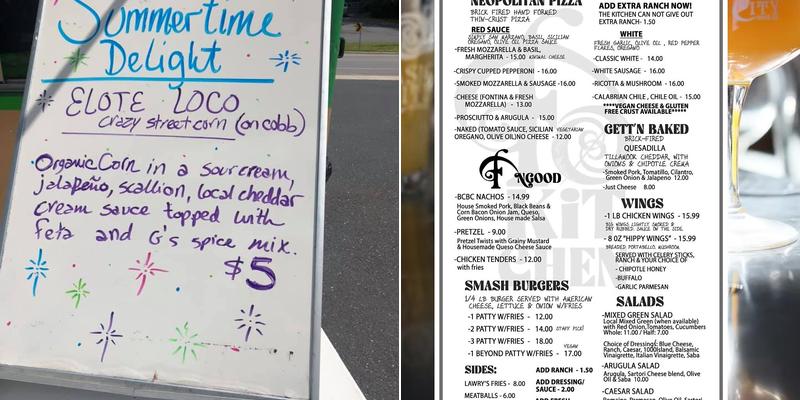 Summertime
Delight
ELOTE LOCO
crazy street corn (on cobb)
Organic Corn in a sour cream,
jalapeño, scallion, local cheddar
cream sauce topped with
feta and G's spice mix.
$5
NEOPOLITAN PIZZA
BRICK FIRED HAND FORMED
THIN-CRUST PIZZA
RED SAUCE
SIMPLY SAN MARZANO, BASIL, SICILIAN
OREGANO, OLIVE OIL PIZZA SAUCE
-FRESH MOZZARELLA & BASIL,
MARGHERITA - 15.00
-CRISPY CUPPED PEPPERONI - 16.00
-SMOKED MOZZARELLA & SAUSAGE -16.00
-CHEESE (FONTINA & FRESH
MOZZARELLA) - 13.00
-PROSCIUTTO & ARUGULA - 15.00
-NAKED (TOMATO SAUCE, SICILIAN VEGETARIAN
OREGANO, OLIVE OIL)NO CHEESE - 12.00
F NGOOD
-BCBC NACHOS - 14.99
House Smoked Pork, Black Beans &
Corn Bacon Onion Jam, Queso,
Green Onions, House made Salsa
-PRETZEL - 9.00
Pretzel Twists with Grainy Mustard
& Housemade Queso Cheese Sauce
-CHICKEN TENDERS - 12.00
with fries
SMASH BURGERS
1/4 LB BURGER SERVED WITH AMERICAN
CHEESE, LETTUCE & ONION W/FRIES
-1 PATTY W/FRIES - 12.00
-2 PATTY W/FRIES - 14.00 STAFF PICK!
-3 PATTY W/FRIES - 18.00
VEGAN
-1 BEYOND PATTY W/FRIES - 17.00
SIDES:
LAWRY'S FRIES - 8.00
MEATBALLS - 6.00
ADD RANCH - 1.50
ADD DRESSING/
SAUCE - 2.00
ADD FRESH
ADD EXTRA RANCH NOW!
THE KITCHEN CAN NOT GIVE OUT
EXTRA RANCH- 1.50
WHITE
FRESH GARLIC, OLIVE OIL, RED PEPPER
FLAKES, OREGANO
-CLASSIC WHITE - 14.00
-WHITE SAUSAGE - 16.00
-RICOTTA & MUSHROOM - 16.00
-CALABRIAN CHILE, CHILE OIL - 15.00
****VEGAN CHEESE & GLUTEN
FREE CRUST AVAILABLE*****
GETT'N BAKED
BRICK-FIRED
QUESADILLA
TILLAMOOK CHEDDAR, WITH
ONIONS & CHIPOTLE CREMA
-Smoked Pork, Tomatillo, Cilantro,
Green Onion & Jalapeno 12.00
-Just Cheese 8.00
WINGS
-1 LB CHICKEN WINGS - 15.99
BIG WINGS, LIGHTLY SMOKED &
DRY RUBBED. SAUCE ON THE SIDE.
- 8 OZ "HIPPY WINGS" - 15.99
BREADED PORTABELLO MUSHROOM
SERVED WITH CELERY STICKS,
RANCH & YOUR CHOICE OF
- CHIPOTLE HONEY
-BUFFALO
-GARLIC PARMESAN
SALADS
-MIXED GREEN SALAD
Local Mixed Green (when available)
with Red Onion, Tomatoes, Cucumbers
Whole: 11.00 / Half: 7.00
Choice of Dressing: Blue Cheese,
Ranch, Caesar, 1000Island, Balsamic
Vinaigrette, Italian Vinaigrette, Saba
-ARUGULA SALAD
Arugula, Sartori Cheese blend, Olive
Oil & Saba 10.00
-CAESAR SALAD
Romaine, Parmesan, Olive Oil, Sartori
KITCHEN